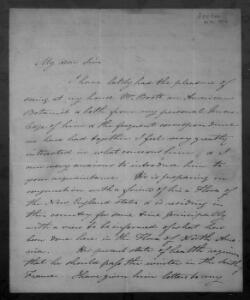 My dear Sir
I have lately had the pleasure of
seeing at my house Mr. Boott an American
Botanist & both from my personal know-
ledge of him & the frequent correspondence
we have had together I feel very greatly
interested in what concerns him, & I
am very anxious to introduce him to
your acquaintance. He is preparing in
conjunction with a friend of his a Flora of
the New England States & is residing in
this country for some time principally
with a view to be informed of what has
been done here in the Flora of North Ame-
rica. His present state of health requires
that he should pass the winter in the South of
France. I have given him letters to my